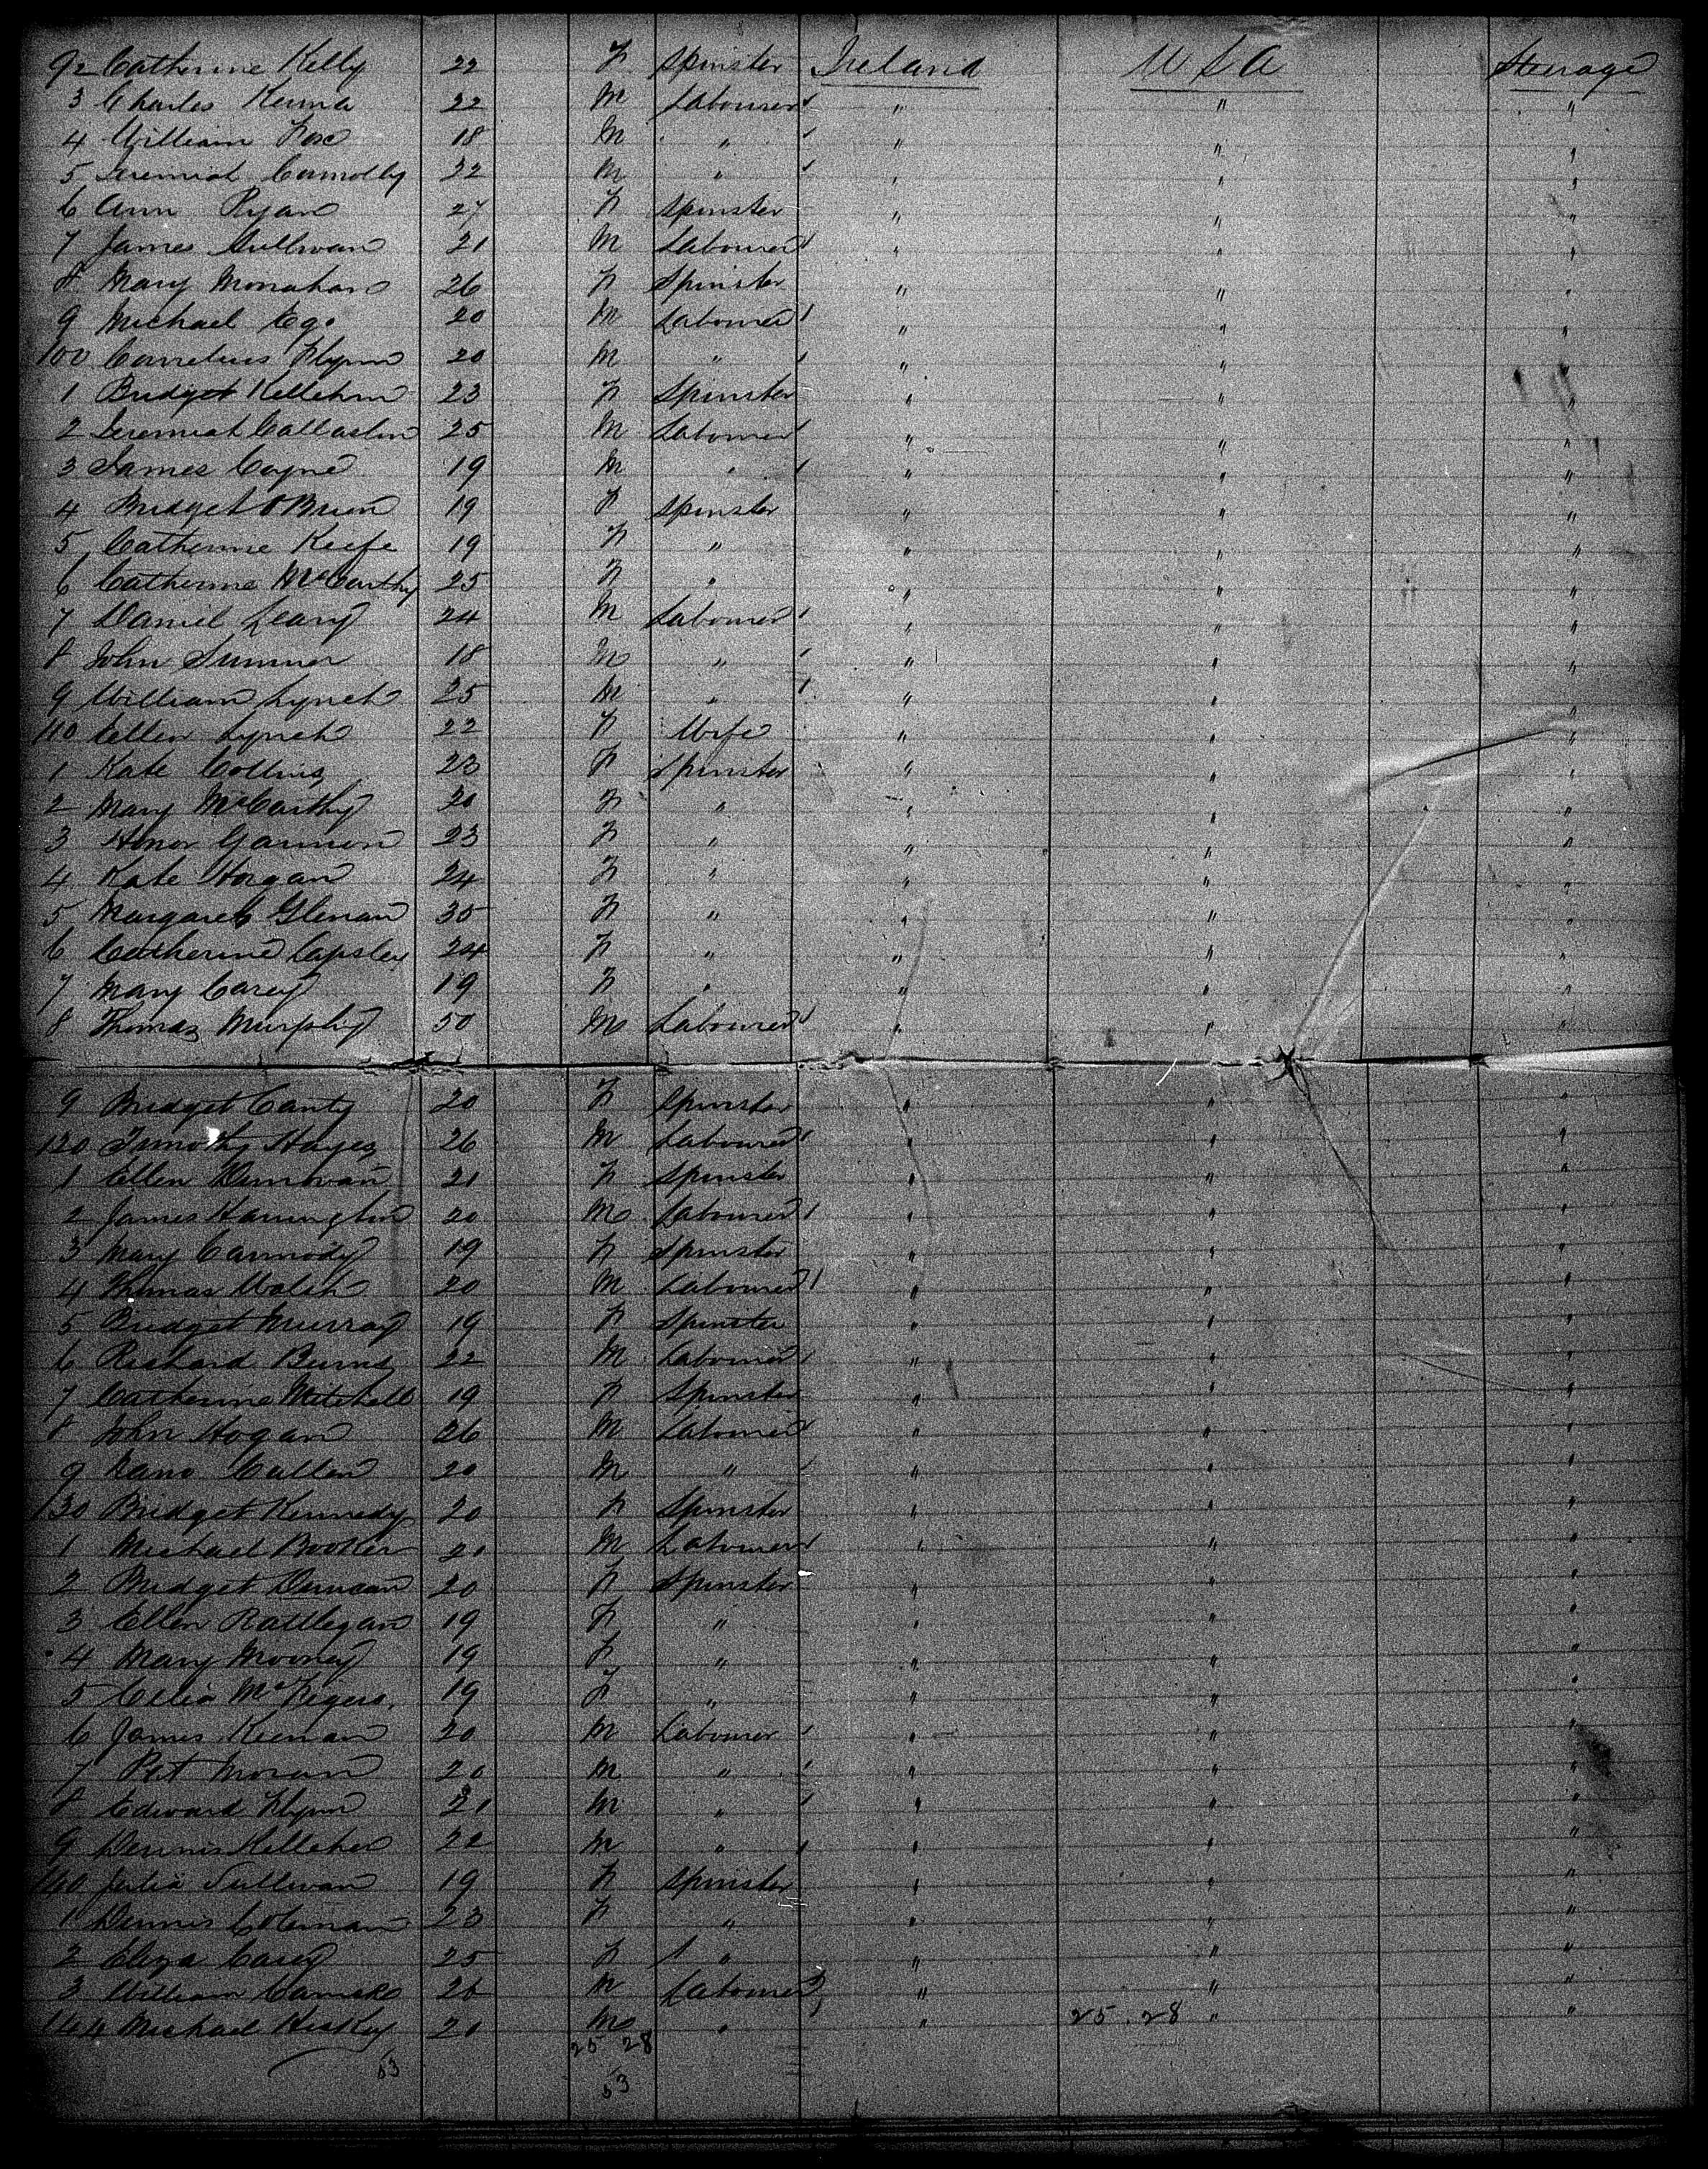 92 Catherine Kelly 22 F Spinster Ireland U S A Steerage
3 Charles 22 M Labourer " " "
4 William Fox 18 M " " " "
5 Jeremiah Connolly 22 M " " " "
6 Ann Ryan 27 F Spinster " " "
7 James Sullivan 21 M Labourer " " "
8 Mary Monahan 26 F Spinster " " "
9 Michael Ego 20 M Labourer " " "
100 Cornelius Flynn 20 M " " " "
1 Bridget Kelleher 23 F Spinster " " "
2 Jeremiah 25 M Labourer " " "
3 James Coyne 19 M " " " "
4 Bridget OBrien 19 F Spinster " " "
5 Catherine Keefe 19 F " " " "
6 Catherine McCarthy 25 F " " " "
7 Daniel Leary 24 M Labourer " " "
8 John Sumner 18 M " " " "
9 William Lynch 25 M " " " "
110 Ellen Lynch 22 F Wife " " "
1 Kate Collins 23 F Spinster " " "
2 Mary McCarthy 20 F " " " "
3 Honor Gannon 23 F " " " "
4 Kate Horgan 24 F " " " "
5 Margaret Glenan 35 F " " " "
6 Catherine Capsley 24 F " " " "
7 Mary Carey 19 F " " " "
8 Thomas Murphy 50 M Labourer " " "
9 Bridget Canty 20 F Spinster " " "
120 Timothy Hayes 26 M Labourer " " "
1 Ellen Donovan 21 F Spinster " " "
2 James Harrington 20 M Labourer " " "
3 Mary Carmody 19 F Spinster " " "
4 Thomas Walsh 20 M Labourer " " "
5 Bridget Murray 19 F Spinster " " "
6 Richard Burns 22 M Labourer " " "
7 Catherine Mitchell 19 F Spinster " " "
8 John Hogan 26 M Labourer " " "
9 Cullen 20 M " " " "
130 Bridget Kennedy 20 F Spinster " " "
1 Michael Booker 21 M Labourer " " "
2 Bridget Duncan 20 F Spinster " " "
3 Ellen Rattlegan 19 F " " " "
4 Mary Mooney 19 F " " " "
5 Celia 19 F " " " "
6 James Keenan 20 M Labourer " " "
7 Pat Moran 20 M " " " "
8 Edward Flynn 21 M " " " "
9 Dennis Kelleher 22 M " " " "
140 Julia Sullivan 19 F Spinster " " "
1 Dennis Coleman 23 F " " " "
2 Eliza Casey 25 F " " " "
3 William 26 M Labourer " " "
144 Michael Heskey 20 M " " 25 . 28 " "
25 28
53 53